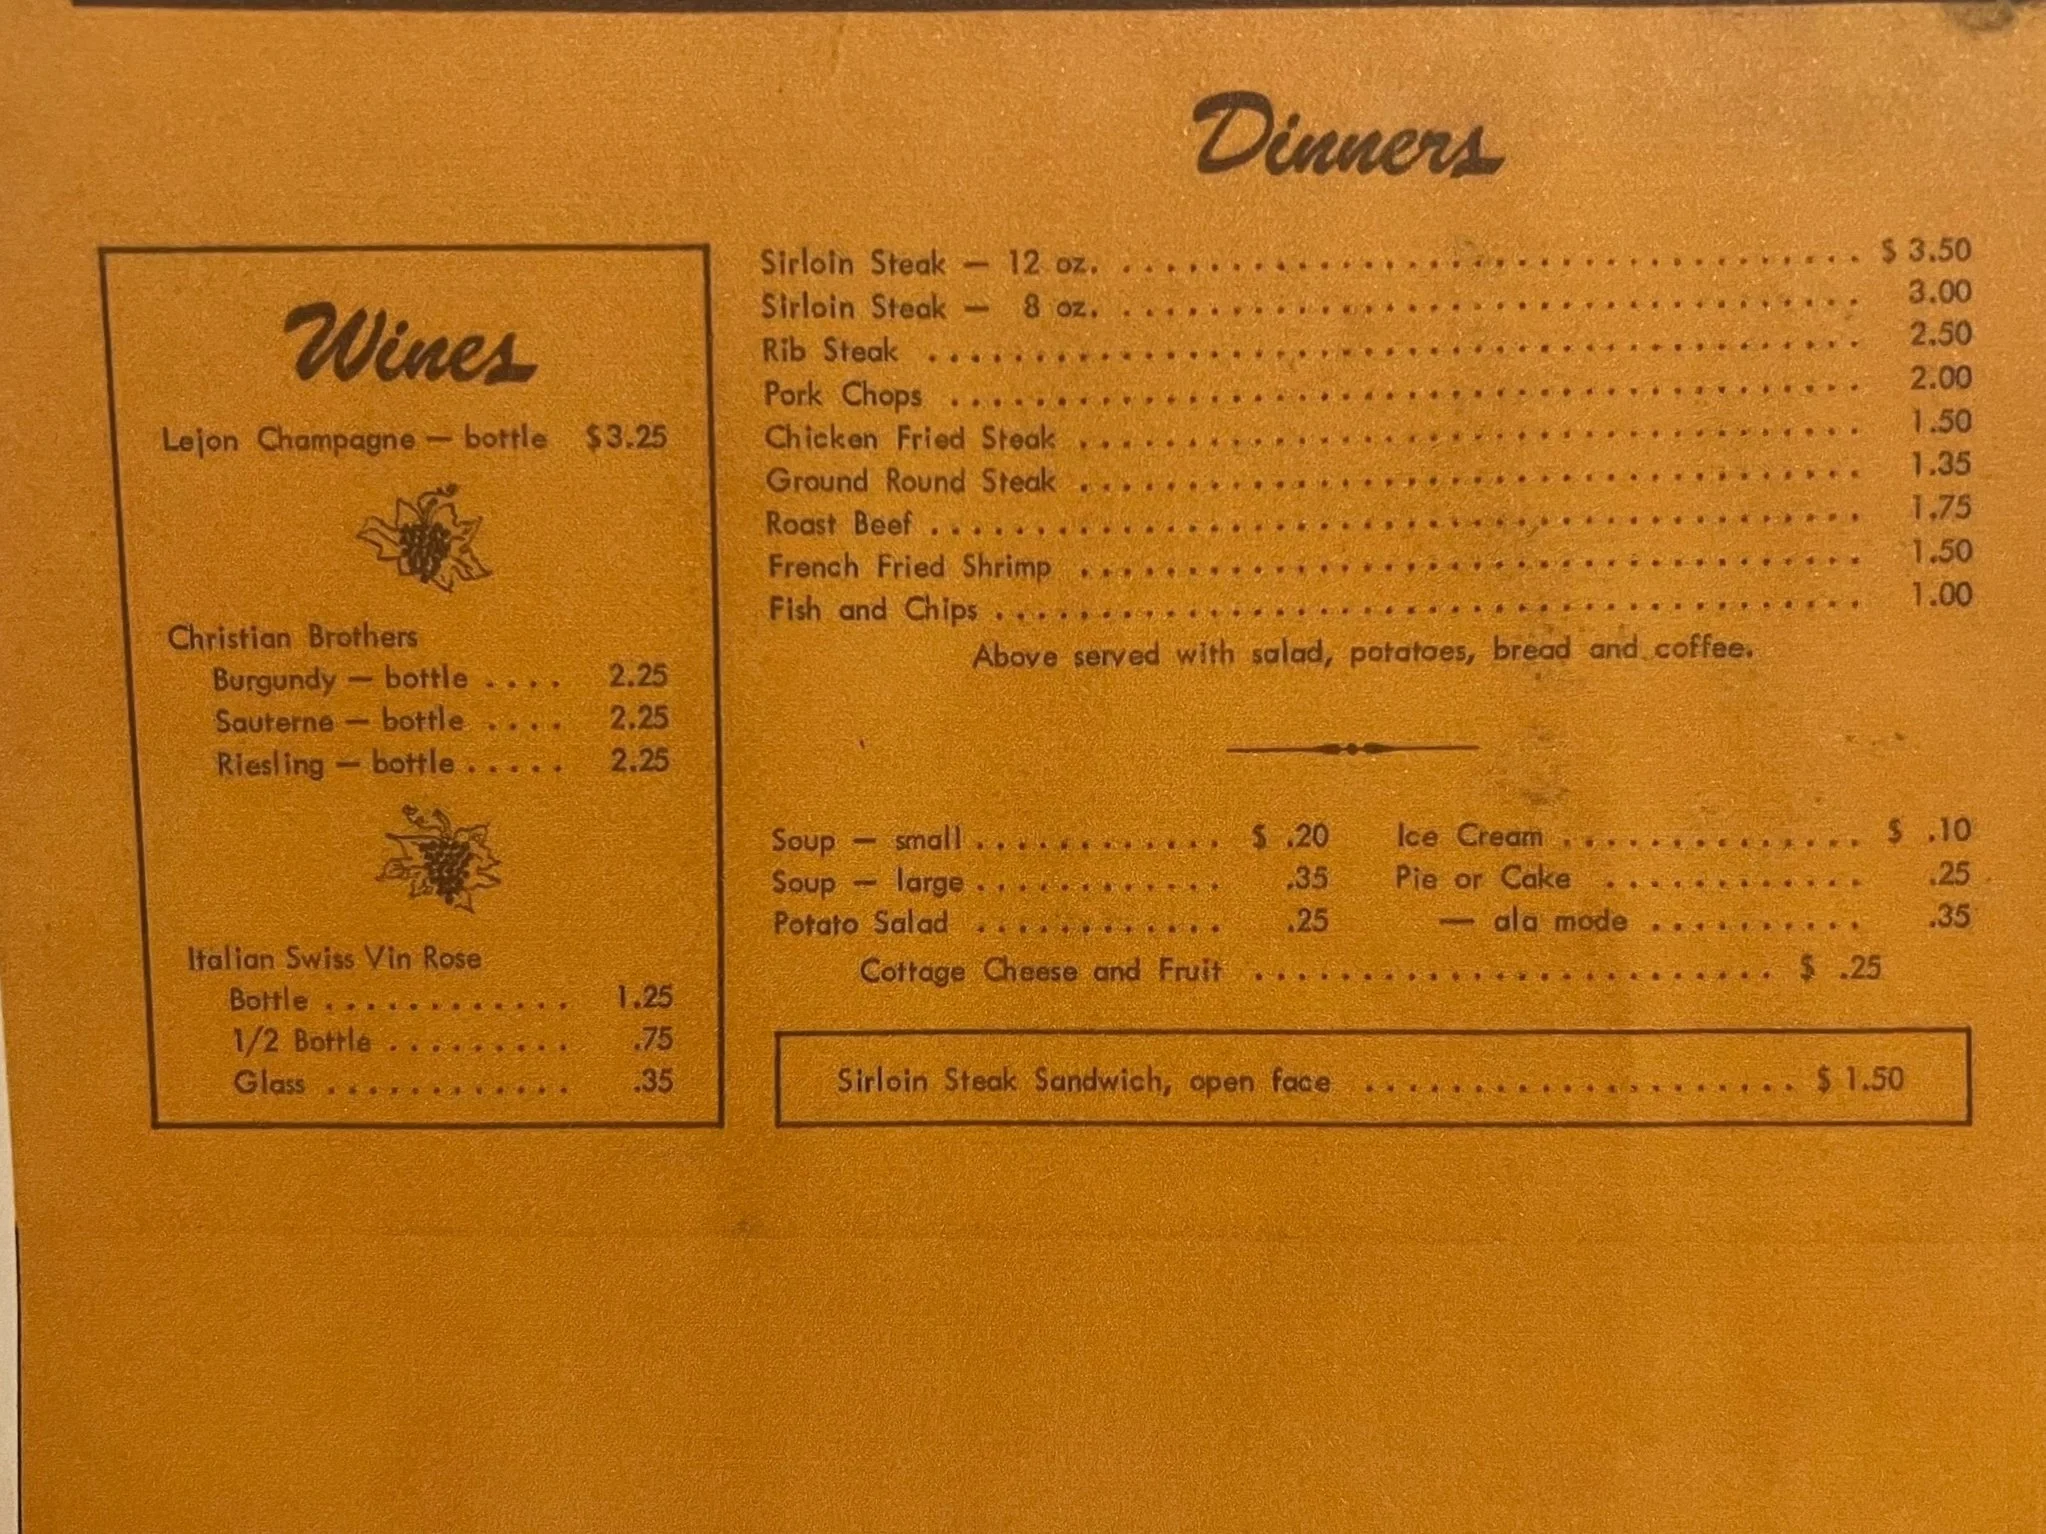 Dinners
Wines
Lejon Champagne — bottle $3.25
Christian Brothers
Burgundy — bottle .... 2.25
Sauterne — bottle .... 2.25
Riesling — bottle ..... 2.25
Italian Swiss Vin Rose
Bottle ............ 1.25
1/2 Bottle ......... .75
Glass ............ .35
Sirloin Steak — 12 oz. ................................... $ 3.50
Sirloin Steak — 8 oz. ................................... 3.00
Rib Steak ............................................ 2.50
Pork Chops ........................................... 2.00
Chicken Fried Steak ..................................... 1.50
Ground Round Steak ..................................... 1.35
Roast Beef ............................................ 1.75
French Fried Shrimp ..................................... 1.50
Fish and Chips ......................................... 1.00
Above served with salad, potatoes, bread and coffee.
Soup — small ............ $ .20
Soup — large ............ .35
Potato Salad ............ .25
Ice Cream .............. $ .10
Pie or Cake ............ .25
— ala mode .......... .35
Cottage Cheese and Fruit ......................... $ .25
Sirloin Steak Sandwich, open face ..................... $ 1.50